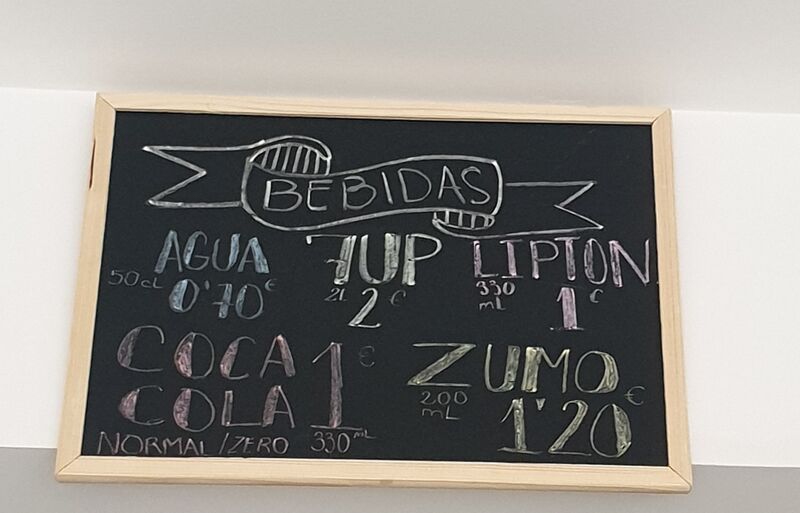 BEBIDAS
AGUA
50cL 0'70€
7UP
2L 2€
LIPTON
330 mL 1€
COCA
COLA 1€
NORMAL/ZERO 330mL
ZUMO
200 mL 1'20€